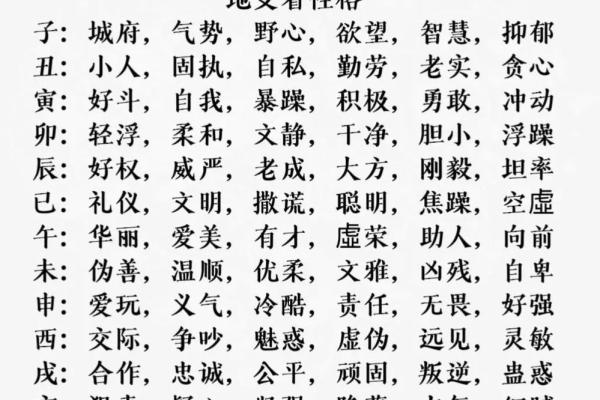 地支看性格
子：城府，气势，野心，欲望，智慧，抑郁
丑：小人，固执，自私，勤劳，老实，贪心
寅：好斗，自我，暴躁，积极，勇敢，冲动
卯：轻浮，柔和，文静，干净，胆小，浮躁
辰：好权，威严，老成，大方，刚毅，坦率
已：礼仪，文明，撒谎，聪明，焦躁，空虚
午：华丽，爱美，有才，虚荣，助人，向前
未：伪善，温顺，优柔，文雅，凶残，自卑
申：爱玩，义气，冷酷，责任，无畏，好强
西：交际，争吵，魅惑，虚伪，远见，灵敏
戌：合作，忠诚，公平，顽固，叛逆，蛊惑